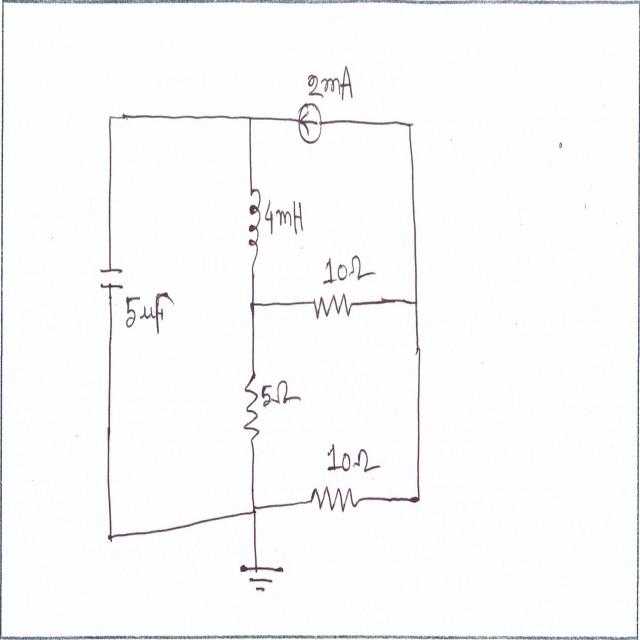 2mA
4mH
10Ω
5μF
5Ω
10Ω